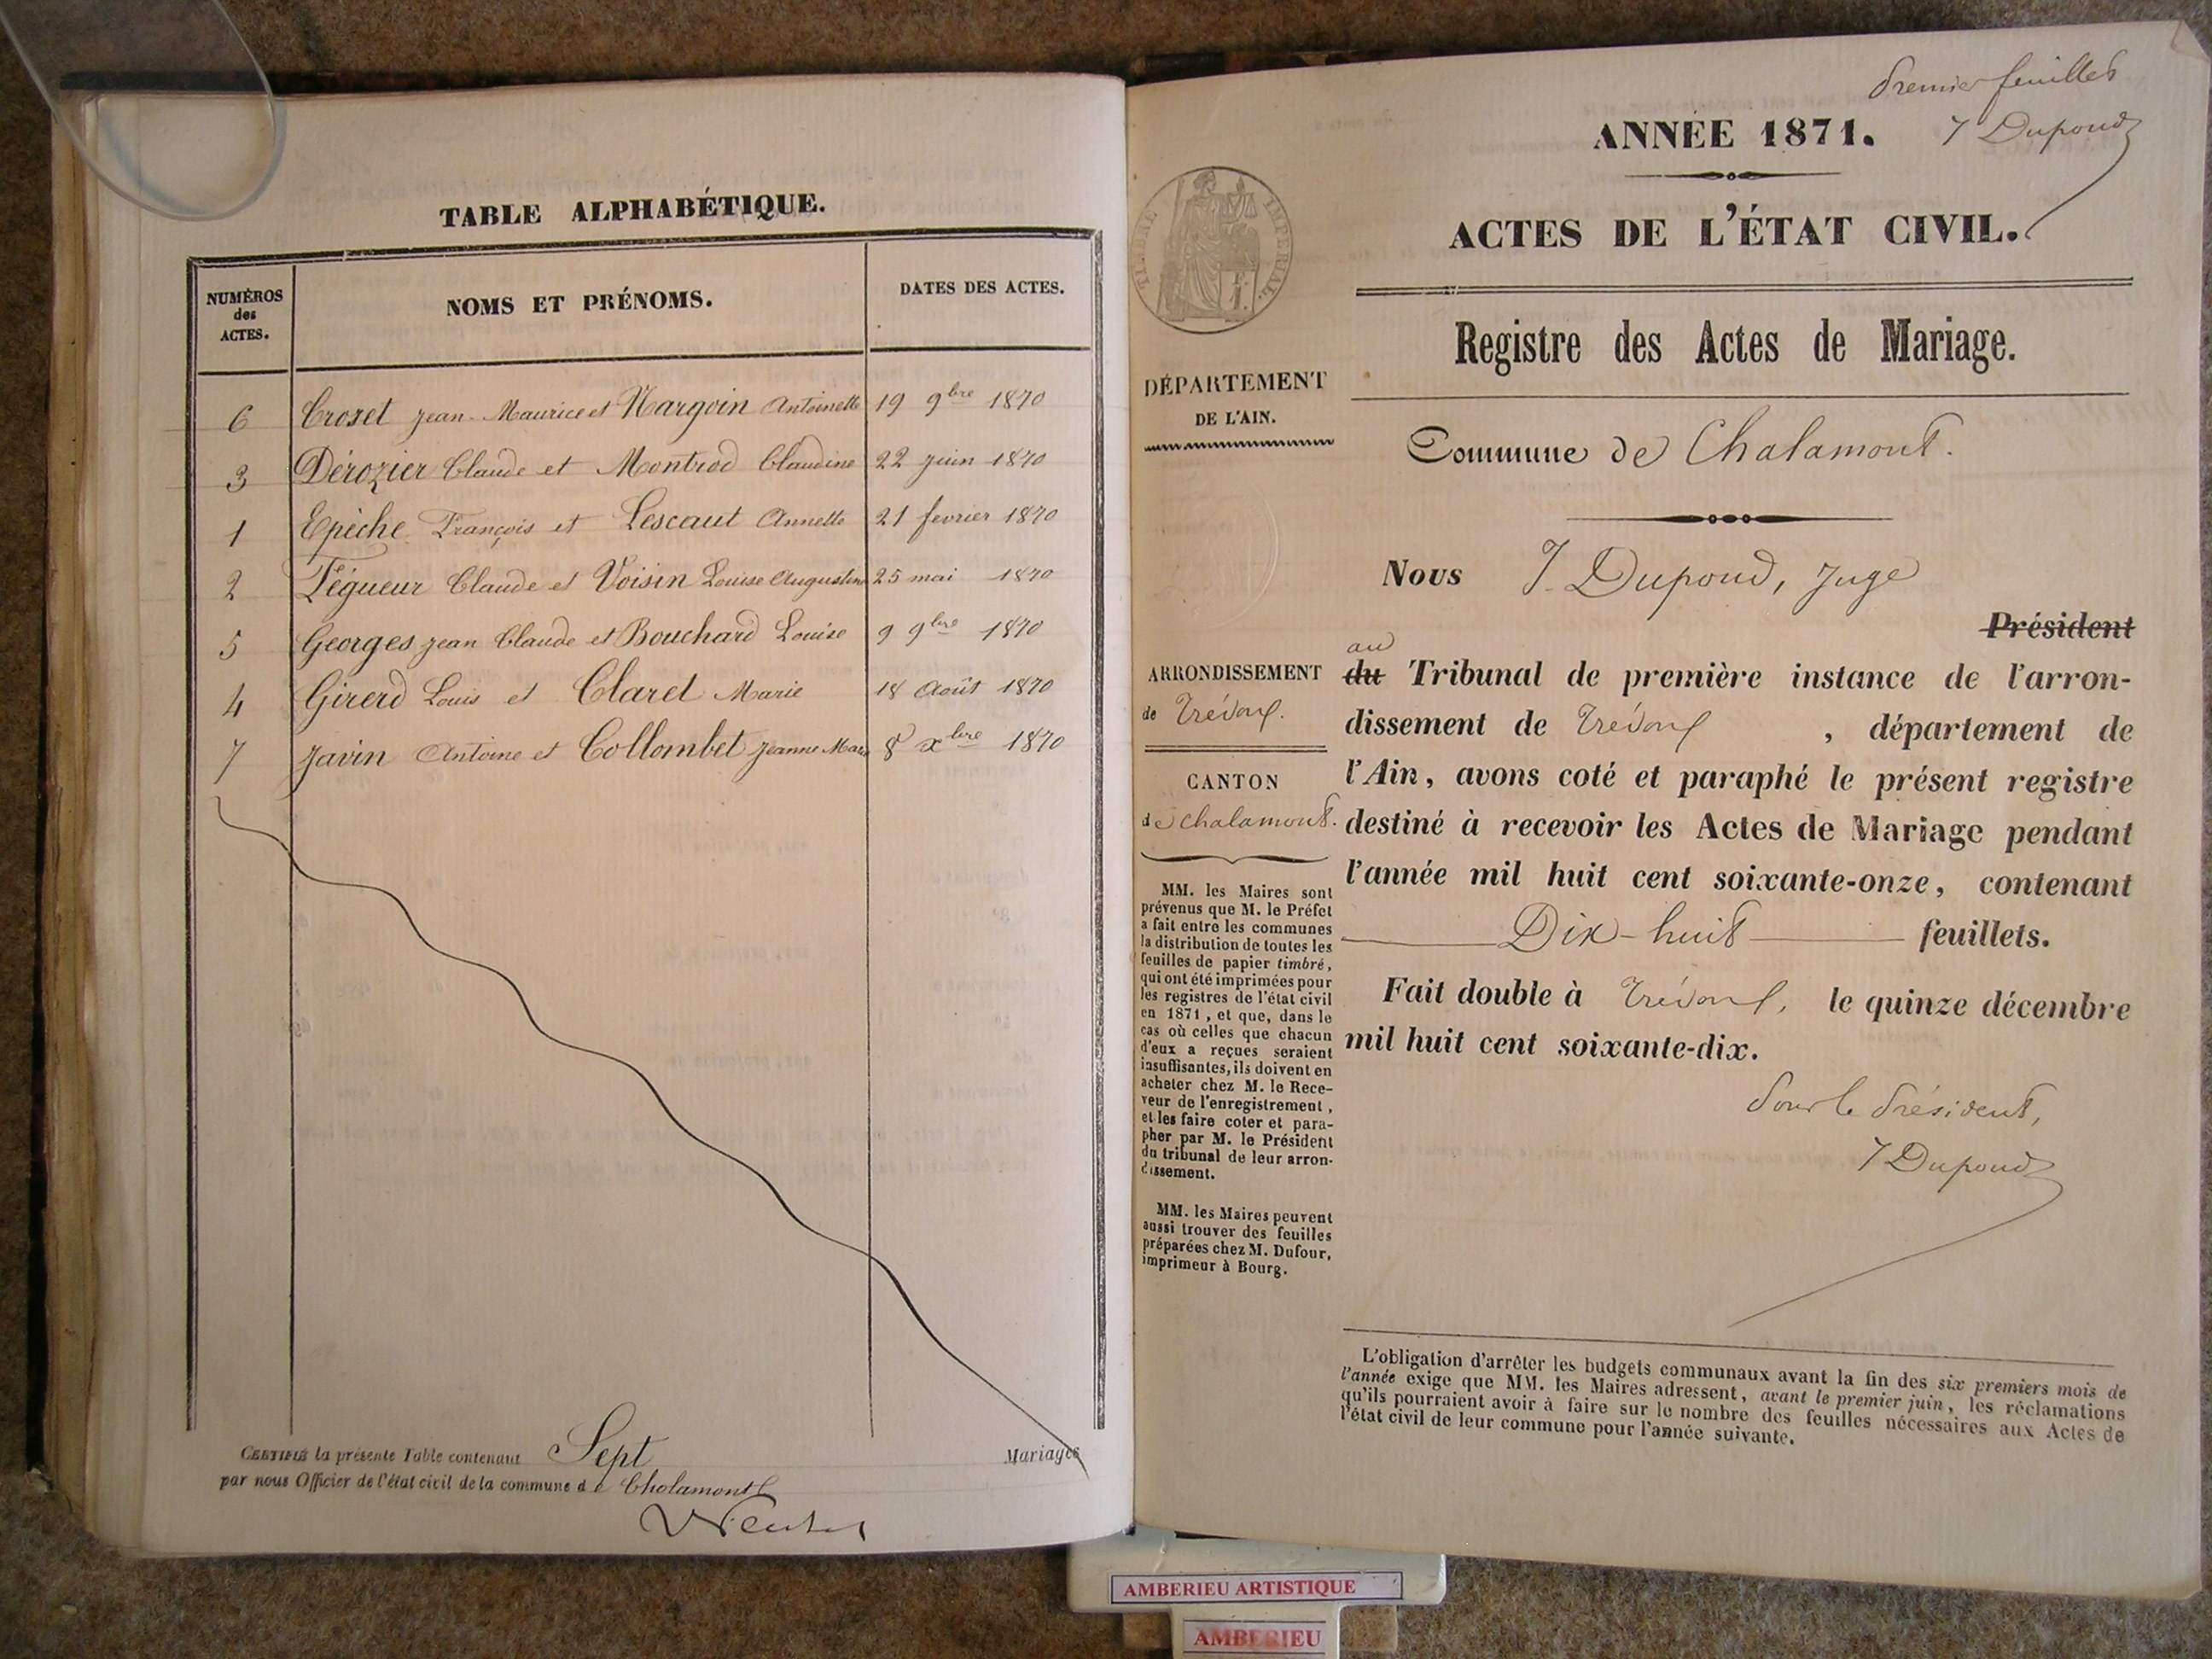 TABLE ALPHABÉTIQUE.
NUMÉROS
des
ACTES.
NOMS ET PRÉNOMS.
DATES DES ACTES.
6 Crozet jean Maurice et Margoin Antoinette 19 9bre 1870
3 Dérozier Claude et Montrod Claudine 22 juin 1870
1 Epèche François et Lescaut Annette 21 fevrier 1870
2 Fégueur Claude et Voisin Louise Augustine 25 mai 1870
5 Georges jean Claude et Bouchard Louise 9 9bre 1870
4 Girerd Louis et Claret Marie 18 Août 1870
7 Javin Antoine et Collombet jeanne Marie 8 xbre 1870
CERTIFIÉ la présente Table contenant Sept Mariages
par nous Officier de l'état civil de la commune de Chalamont
premier feuillet
J Dupond
ANNÉE 1871.
ACTES DE L'ÉTAT CIVIL.
TIMBRE IMPÉRIAL
1 F.
Registre des Actes de Mariage.
DÉPARTEMENT
DE L'AIN.
Commune de Chalamont.
Nous J. Dupond, Juge
Président
au
ARRONDISSEMENT
de Trévoux.
CANTON
de Chalamont.
du Tribunal de première instance de l'arron-
dissement de Trévoux, département de
l'Ain, avons coté et paraphé le présent registre
destiné à recevoir les Actes de Mariage pendant
l'année mil huit cent soixante-onze, contenant
Dix-huit feuillets.
Fait double à Trévoux, le quinze décembre
mil huit cent soixante-dix.
Pour le Président,
J Dupond
MM. les Maires sont
prévenus que M. le Préfet
a fait entre les communes
la distribution de toutes les
feuilles de papier timbré,
qui ont été imprimées pour
les registres de l'état civil
en 1871, et que, dans le
cas où celles que chacun
d'eux a reçues seraient
insuffisantes, ils doivent en
acheter chez M. le Rece-
veur de l'enregistrement,
et les faire coter et para-
pher par M. le Président
du tribunal de leur arron-
dissement.
MM. les Maires peuvent
aussi trouver des feuilles
préparées chez M. Dufour,
imprimeur à Bourg.
L'obligation d'arrêter les budgets communaux avant la fin des six premiers mois de
l'année exige que MM. les Maires adressent, avant le premier juin, les réclamations
qu'ils pourraient avoir à faire sur le nombre des feuilles nécessaires aux Actes de
l'état civil de leur commune pour l'année suivante.
AMBERIEU ARTISTIQUE
AMBERIEU